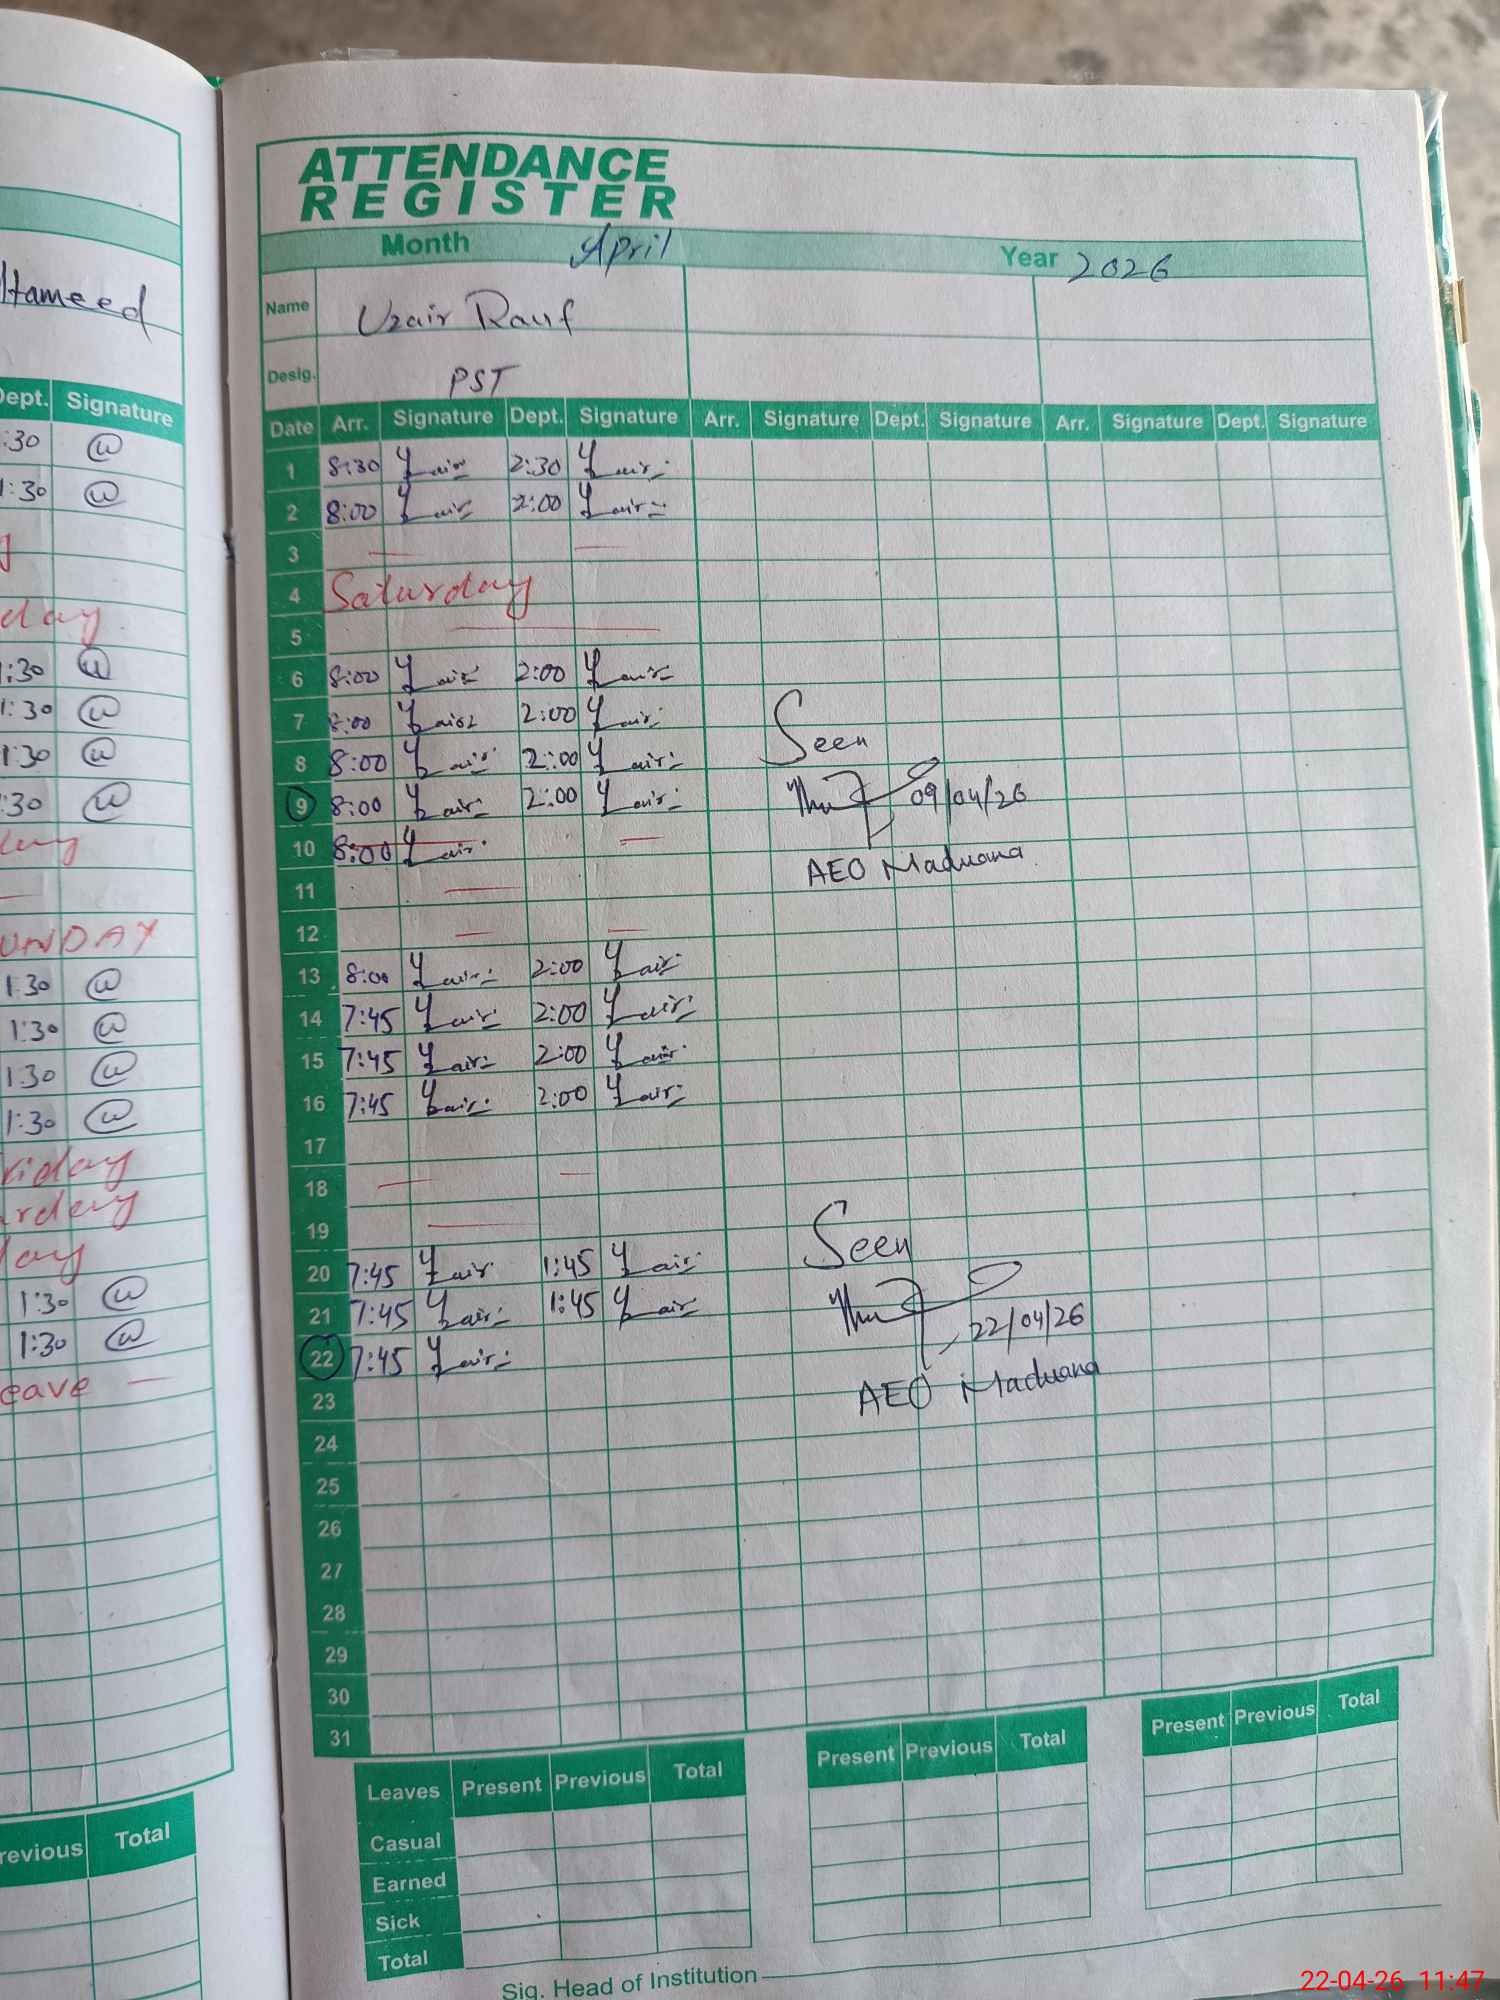 Hameed
Dept. Signature
:30
1:30
day
1:30
1:30
1:30
:30
UNDAY
1:30
1:30
1:30
1:30
riday
rday
day
1:30
1:30
eave —
revious Total
ATTENDANCE
REGISTER
Month April Year 2026
Name Uzair Rauf
Desig. PST
Date Arr. Signature Dept. Signature Arr. Signature Dept. Signature Arr. Signature Dept. Signature
1 8:30 2:30
2 8:00 2:00
3
4 Saturday
5
6 8:00 2:00
7 8:00 2:00
8 8:00 2:00
Seen
9 8:00 2:00 09/04/26
10 8:00
AEO Maduana
11
12
13 8:00 2:00
14 7:45 2:00
15 7:45 2:00
16 7:45 2:00
17
18
19
Seen
20 7:45 1:45
21 7:45 1:45
22/04/26
22 7:45
AEO Maduana
23
24
25
26
27
28
29
30
31
Leaves Present Previous Total Present Previous Total Present Previous Total
Casual
Earned
Sick
Total
Sig. Head of Institution
22-04-26 11:47